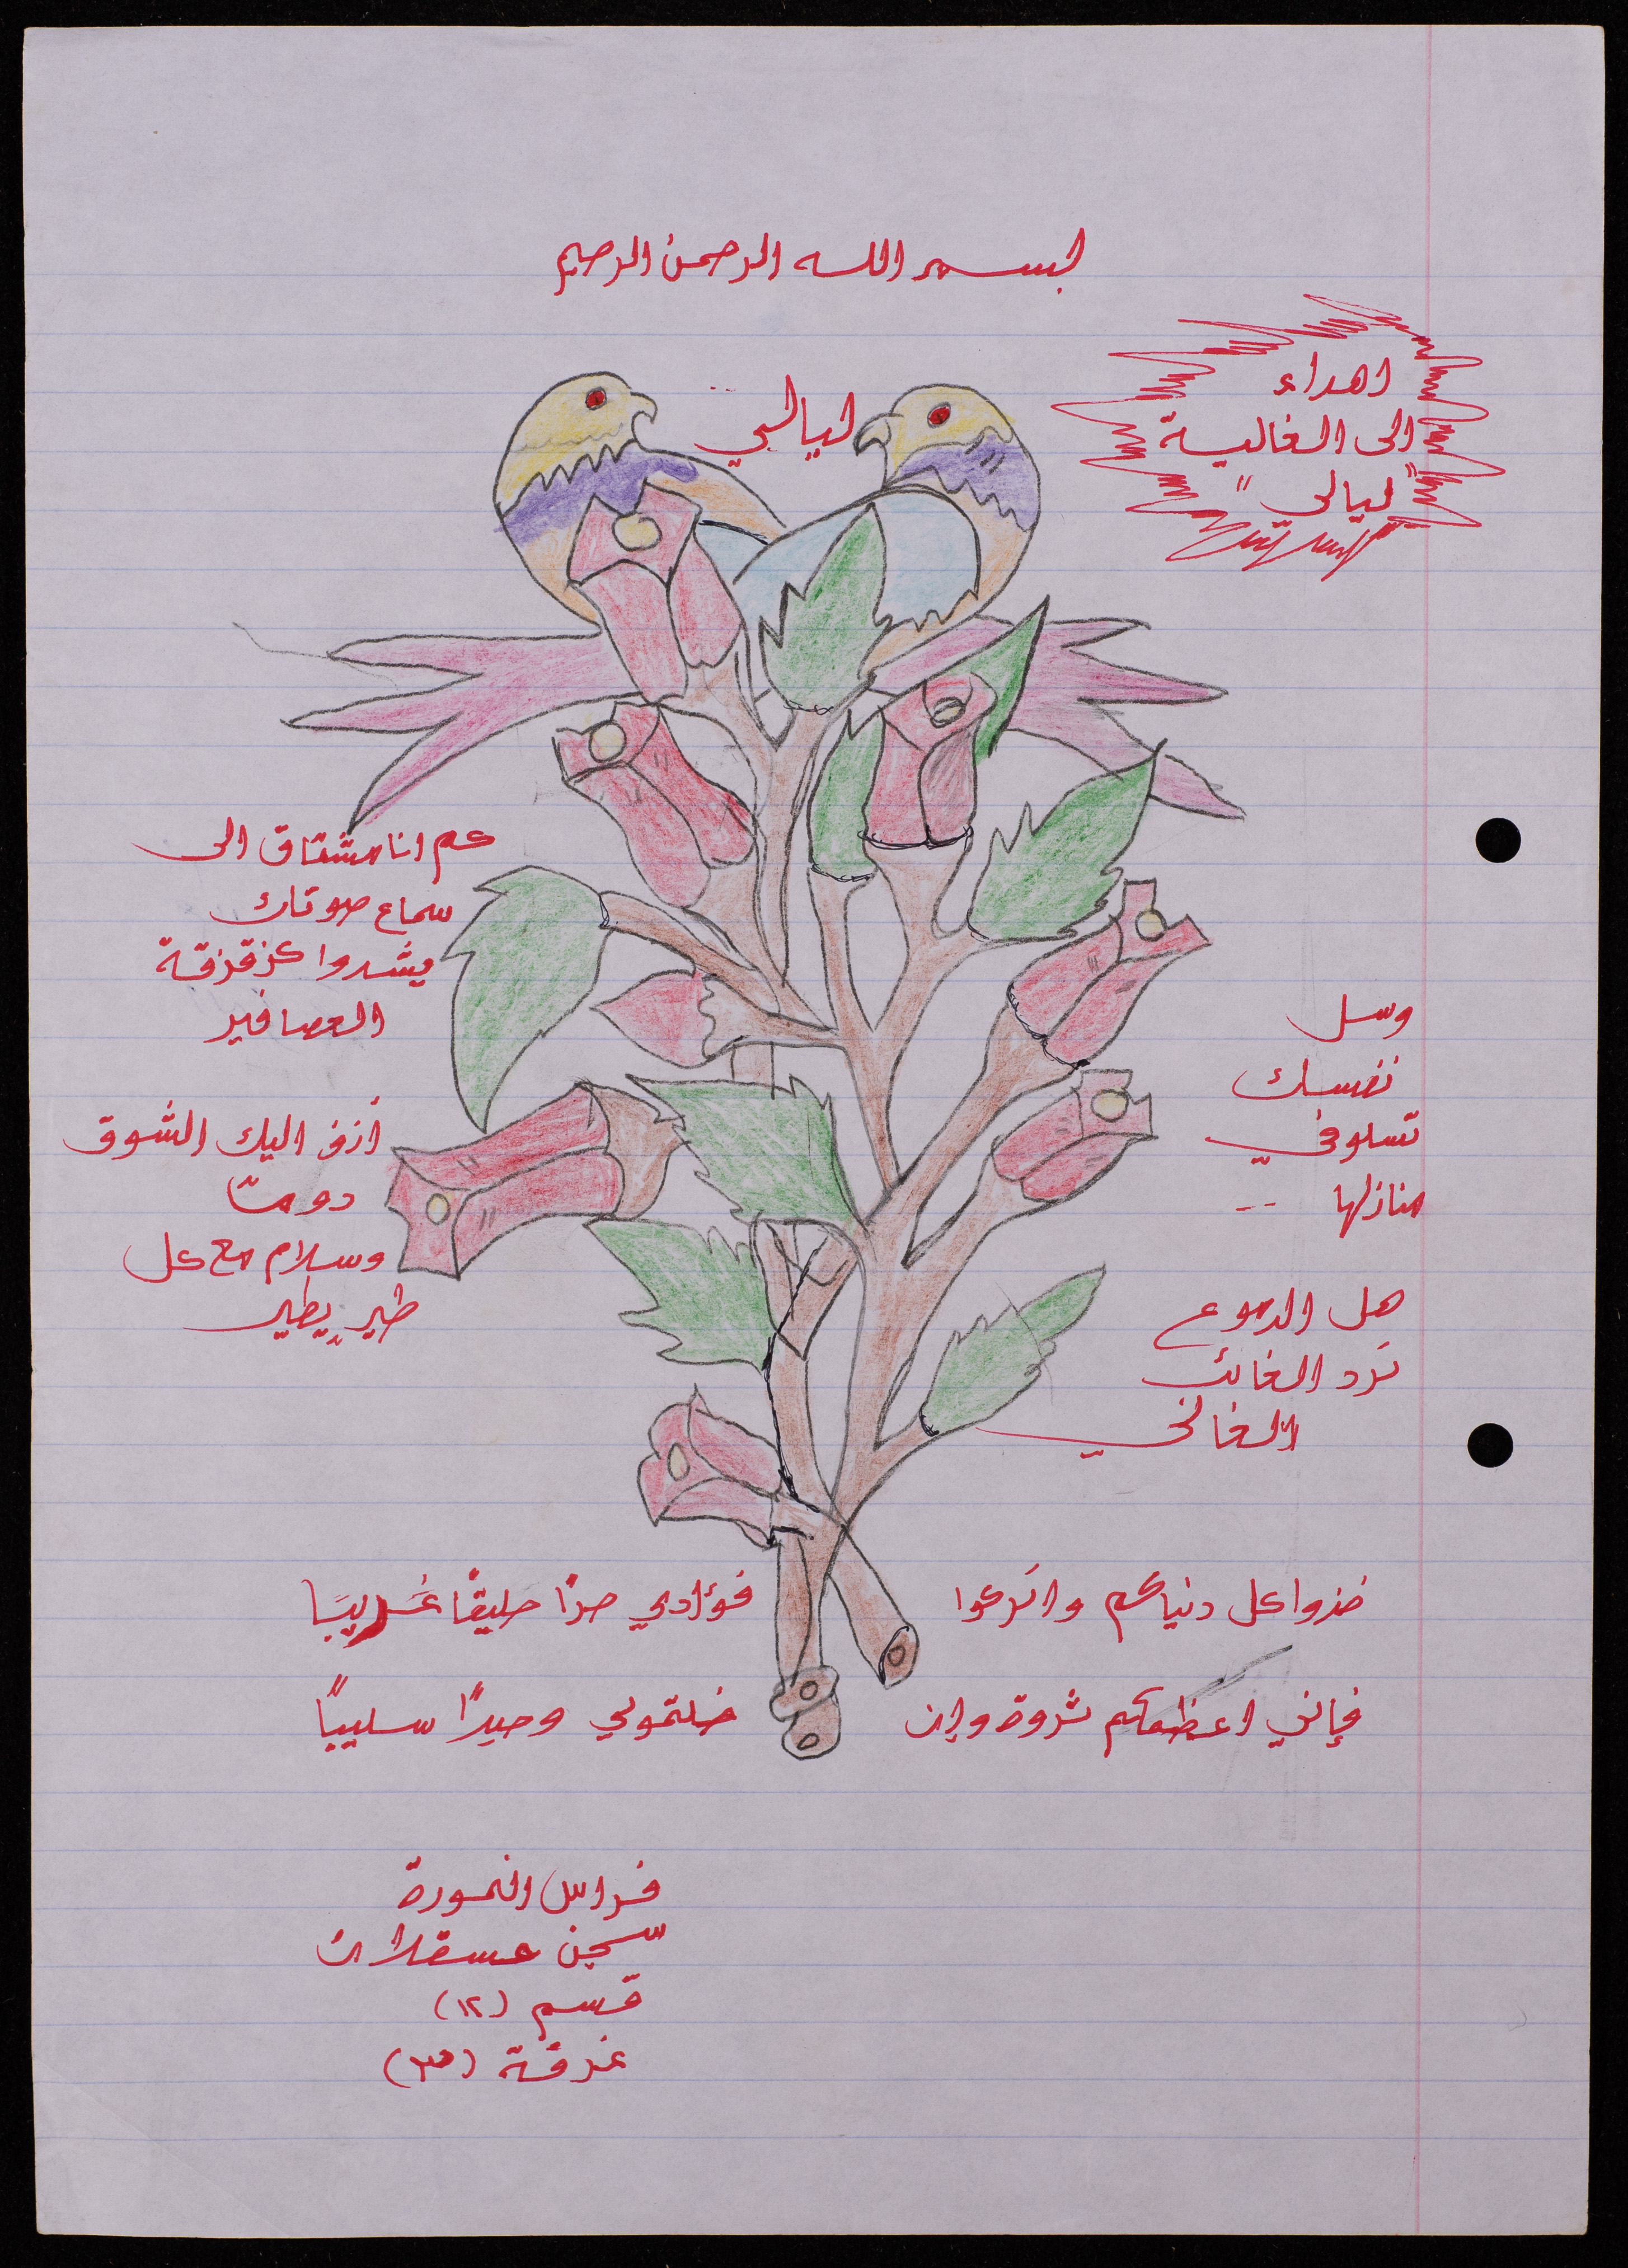 بسم الله الرحمن الرحيم
اهداء
الى الغالية
"ليالي"
ليالي
كم انا مشتاق الى
سماع صوتك
يشدوا كزقزقة
العصافير
أزف اليك الشوق
دومًا
وسلام مع كل
طير يطير
وسل
نفسك
تسلو في
منازلها --
هل الدموع
ترد الغائب
الغالي
خذوا كل دنياكم واتركوا فؤادي حرًا طليقًا غريبًا
فإني اعظمكم ثروة وإن خلتموني وحيدًا سليبًا
فراس
سجن عسقلان
قسم (١٢)
غرفة